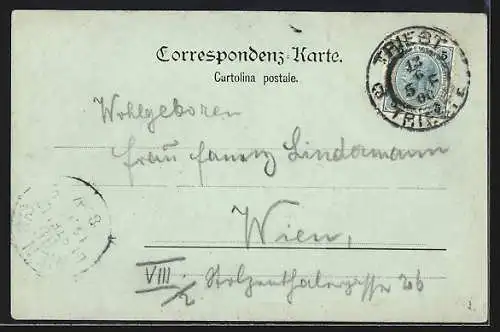 Correspondenz-Karte.
Cartolina postale.
TRIEST
TRIESTE
Wohlgeboren
Frau Fanny Lindermann
Wien,
VIII/2 Stolzenthalergasse 26